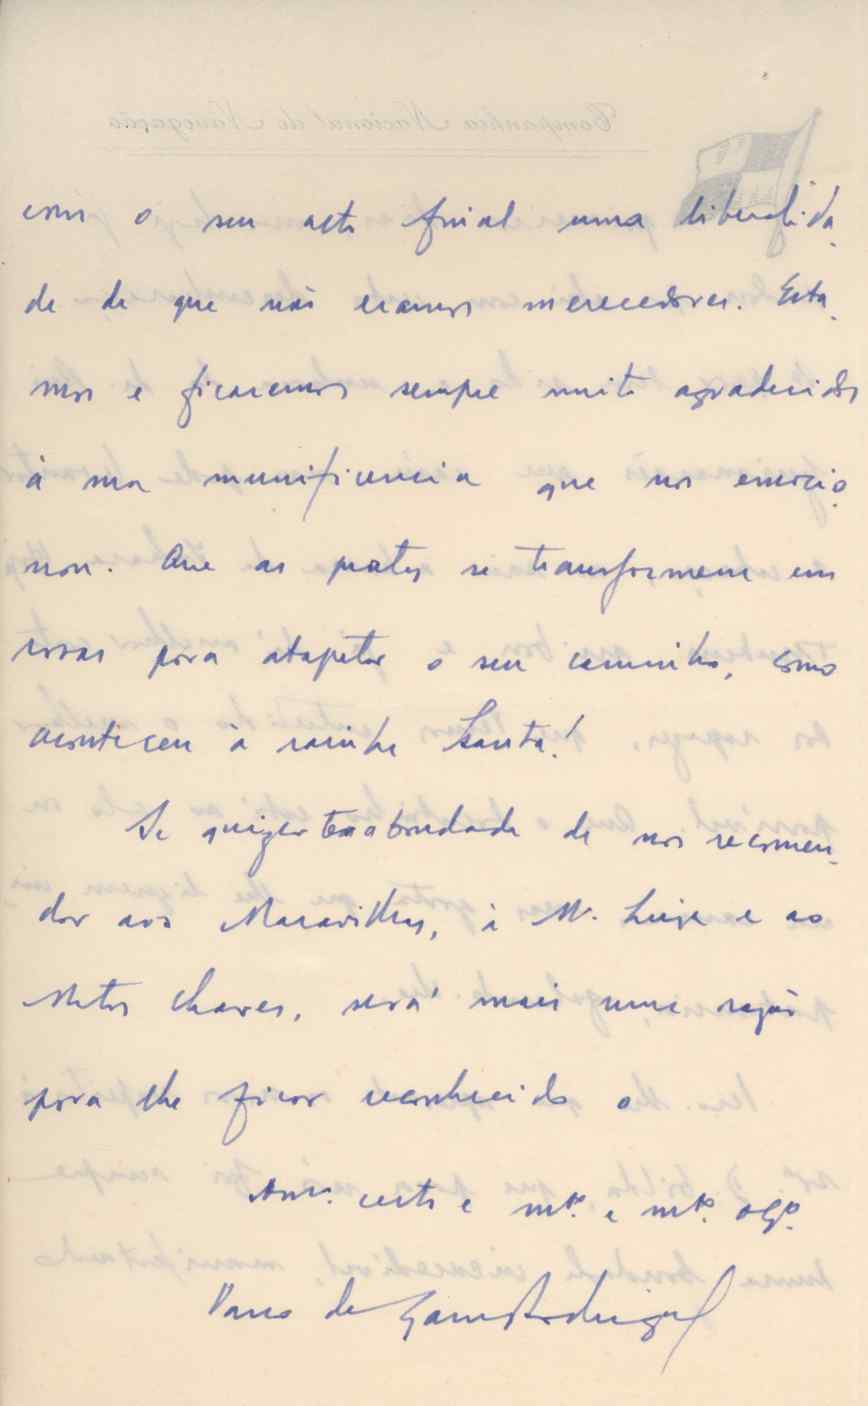 com o seu acto final uma liberalida-
de de que não eramos merecedores. Esta-
mos e ficaremos sempre muito agradecidos
à sua munificencia que nos emocio-
nou. Que as pratas se transformem em
rosas para atapetar o seu caminho, como
aconteceu à rainha Santa!
Se quizer ter a bondade de nos recomen-
dar aos Maravilhas, à Mª. Luiza e ao
Matos Chaves, será mais uma razão
para lhe ficar reconhecido o
Amº. certo e mtº. e mtº. obgº.
Vasco de